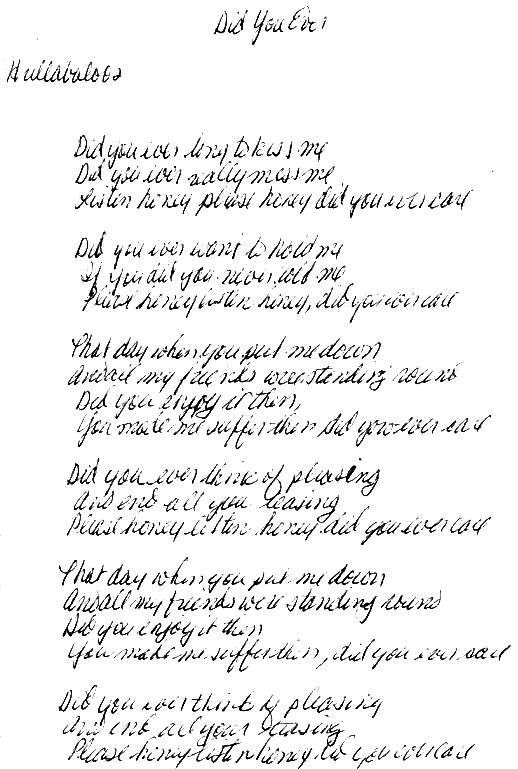 Did You Ever
Hullabaloos
Did you ever long to kiss me
Did you ever really miss me
Listen honey please honey did you ever care
Did you ever want to hold me
If you did you never told me
Please honey listen honey, did you ever care
That day when you put me down
And all my friends were standing round
Did you enjoy it then,
You made me suffer then did you ever care
Did you ever think of pleasing
And end all you teasing
Please honey listen honey did you ever care
That day when you put me down
And all my friends were standing round
Did you enjoy it then
You make me suffer then, did you ever care
Did you ever think of pleasing
And end all your teasing
Please honey listen honey did you ever care